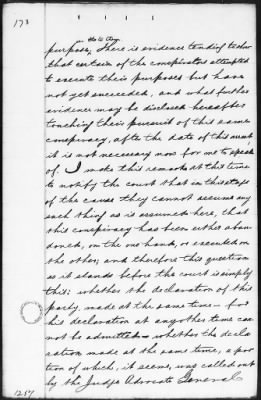 173
as to its Object
purpose. There is evidence tending to show
that certain of the conspirators attempted
to execute their purposes but have
not yet succeeded, and what further
evidence may be disclosed hereafter
touching their pursuit of this same
conspiracy, after the date of this arrest
it is not necessary now for me to speak
of. I make this remark at this time
to notify the court that in this stage
of the cause they cannot assume any
such thing as is assumed here, that
this conspiracy has been either aban
doned, on the one hand, or executed on
the other, and therefore this question
as it stands before the court is simply
this: whether the declaration of this
party, made at the same time – for
his declaration at any other time can
not be admitted – whether the decla
ration made at the same time, a por
tion of which, it seems, was called out
by the Judge Advocate General
1257